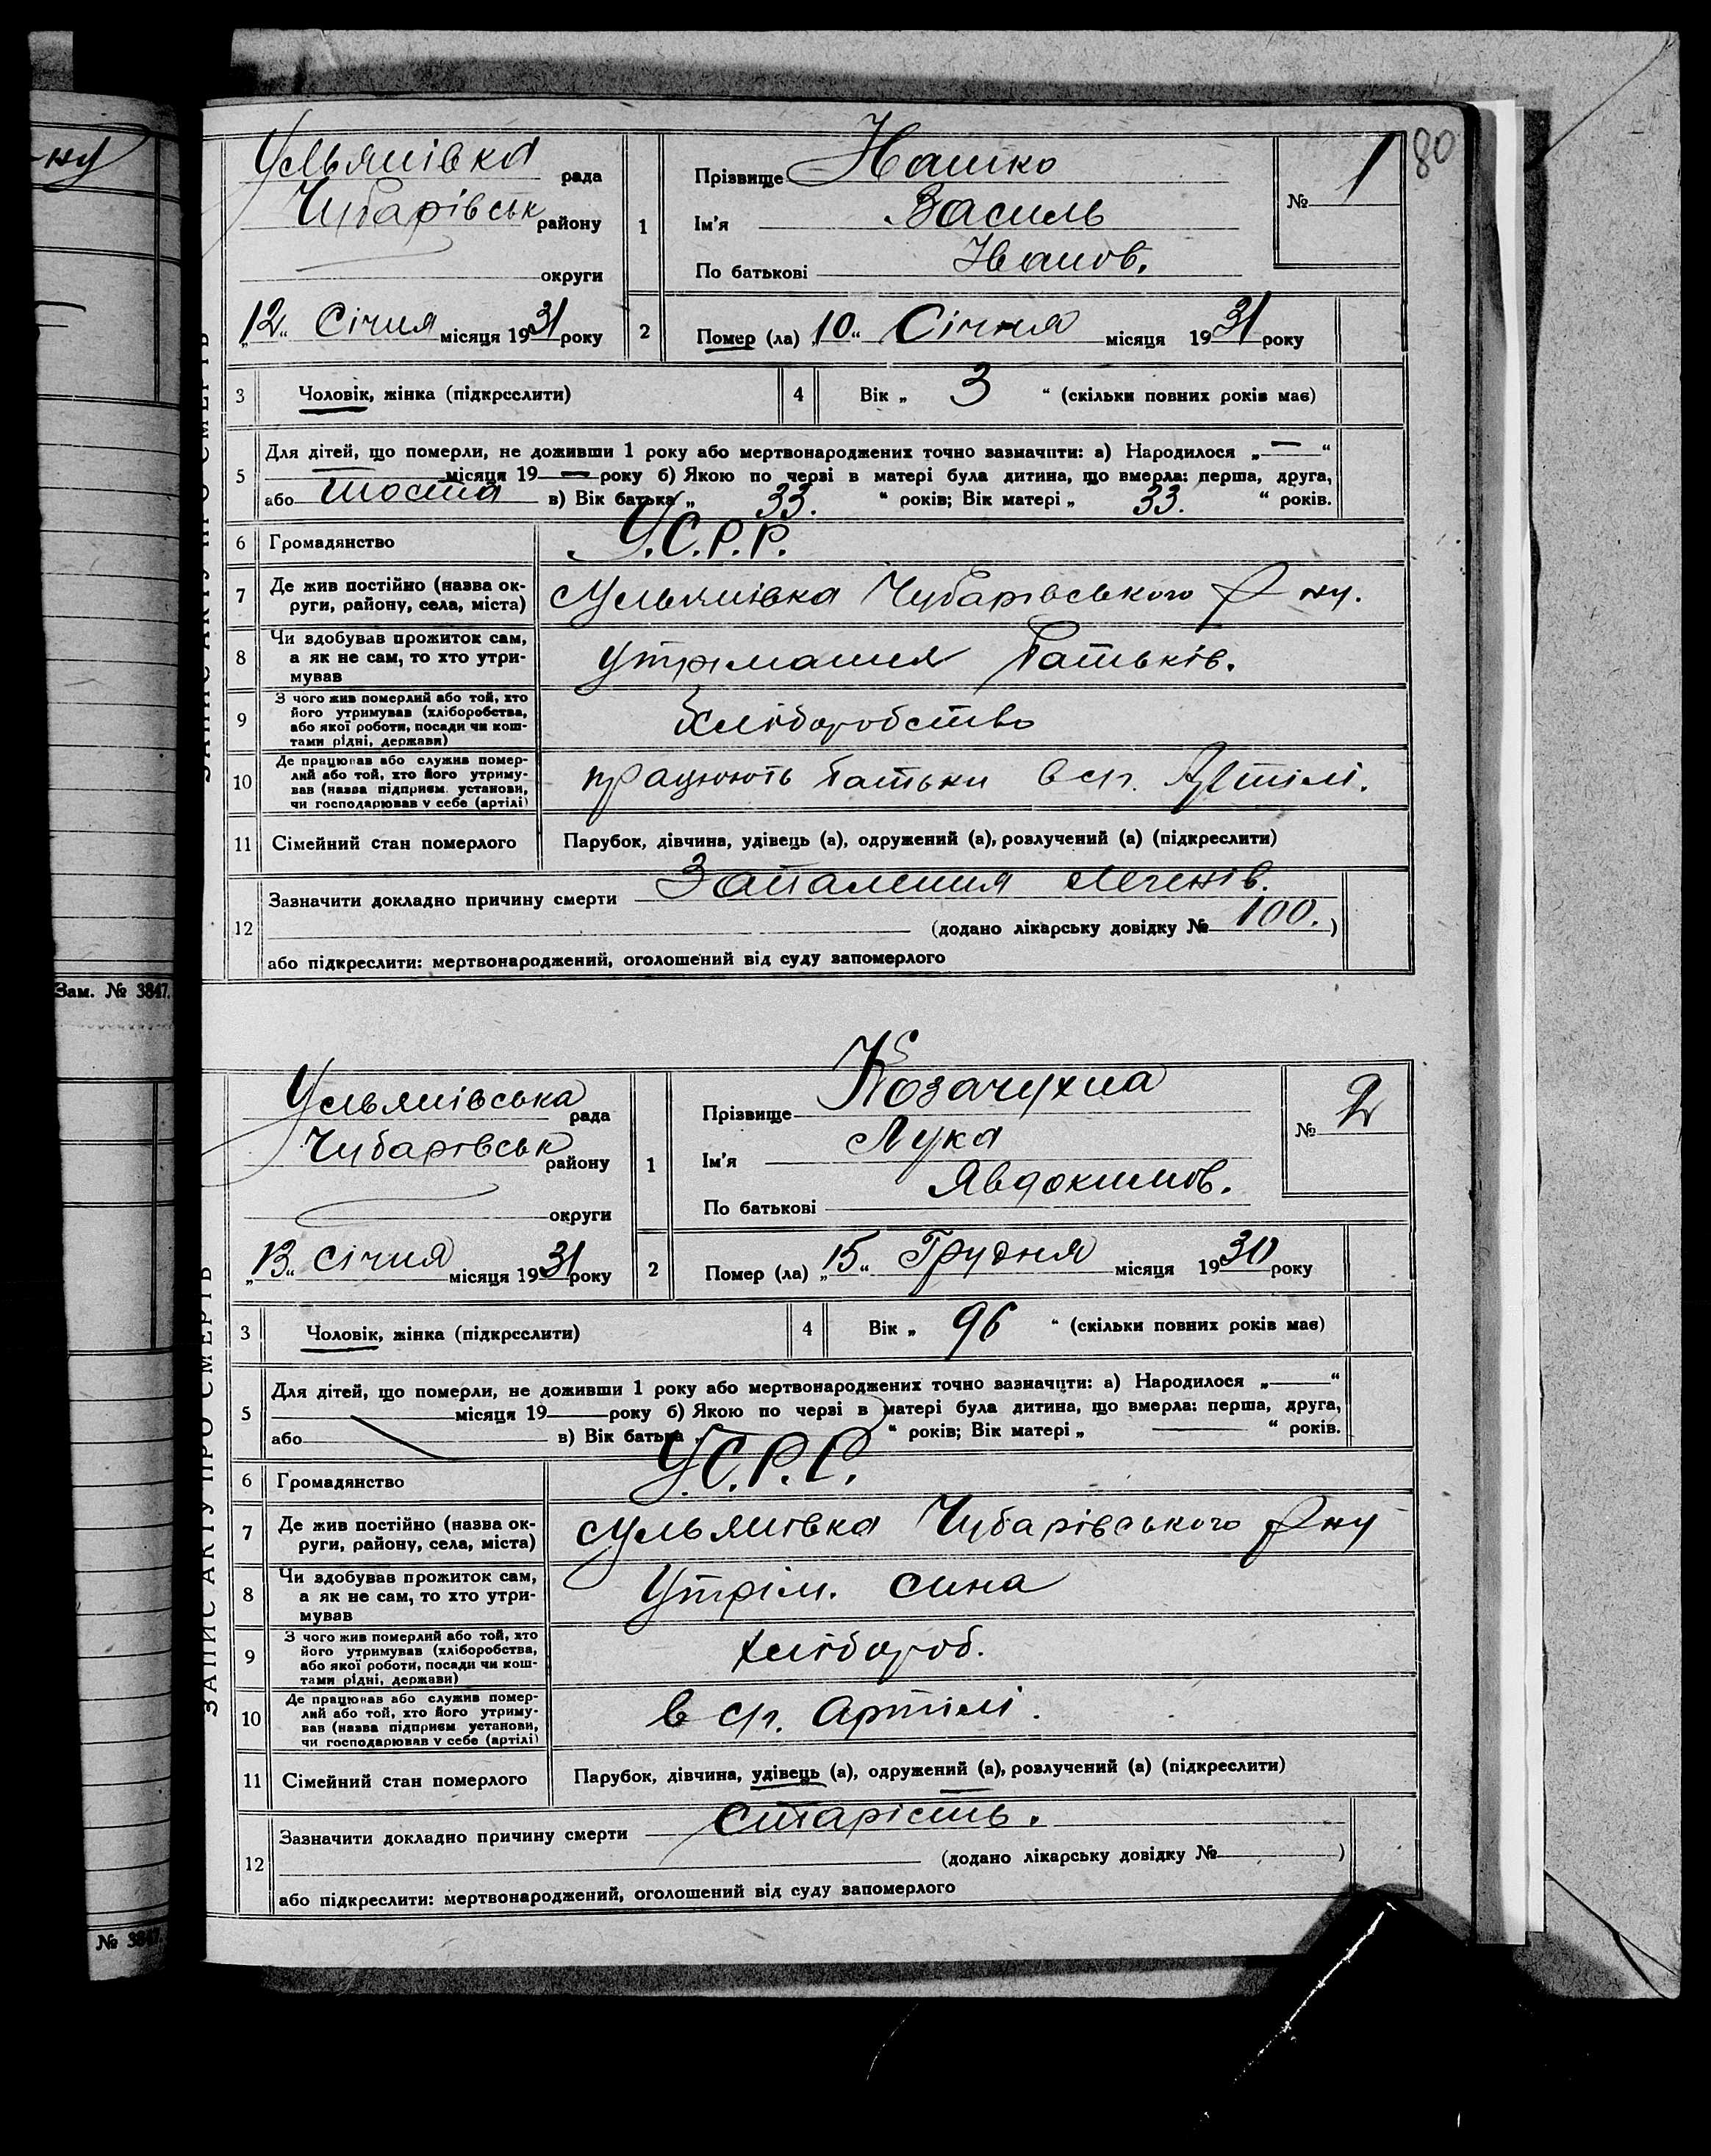 ну
Зам. № 3847.
№ 3847.
80
ЗАПИС АКТУ ПРО СМЕРТЬ
Ульянівка рада
Чубарівськ району
округи
„12“ Січня місяця 1931 року
1
Прізвище Нашко
Ім'я Василь
По батькові Іванов.
№ 1
2
Помер (ла) „10“ Січня місяця 1931 року
3 Чоловік, жінка (підкреслити)
4 Вік „ 3 “ (скільки повних років має)
5
Для дітей, що померли, не доживши 1 року або мертвонароджених точно зазначити: а) Народилося „—“
місяця 19— року б) Якою по черзі в матері була дитина, що вмерла: перша, друга,
або шоста в) Вік батька „ 33. “ років; Вік матері „ 33. “ років.
6 Громадянство У.С.Р.Р.
7 Де жив постійно (назва ок-
руги, району, села, міста) с Ульянівка Чубарівського р ну.
8 Чи здобував прожиток сам,
а як не сам, то хто утри-
мував утримання батьків.
9 З чого жив померлий або той, хто
його утримував (хліборобства,
або якої роботи, посади чи кош-
тами рідні, держави) хліборобство
10 Де працював або служив помер-
лий або той, хто його утриму-
вав (назва підприєм. установи,
чи господарював у себе (артілі) працюють батьки в с/г. Артілі.
11 Сімейний стан померлого Парубок, дівчина, удівець (а), одружений (а), розлучений (а) (підкреслити)
12
Зазначити докладно причину смерти Запалення легенів.
(додано лікарську довідку № 100.)
або підкреслити: мертвонароджений, оголошений від суду запомерлого
ЗАПИС АКТУ ПРО СМЕРТЬ
Ульянівська рада
Чубарівськ району
округи
„13“ січня місяця 1931 року
1
Прізвище Козачухна
Ім'я Лука
По батькові Явдокимов.
№ 2
2
Помер (ла) „15“ Грудня місяця 1930 року
3 Чоловік, жінка (підкреслити)
4 Вік „ 96 “ (скільки повних років має)
5
Для дітей, що померли, не доживши 1 року або мертвонароджених точно зазначити: а) Народилося „—“
місяця 19— року б) Якою по черзі в матері була дитина, що вмерла: перша, друга,
або в) Вік батька „ “ років; Вік матері „ — “ років.
6 Громадянство У.С.Р.Р.
7 Де жив постійно (назва ок-
руги, району, села, міста) с Ульянівка Чубарівського р ну
8 Чи здобував прожиток сам,
а як не сам, то хто утри-
мував Утрім. сина
9 З чого жив померлий або той, хто
його утримував (хліборобства,
або якої роботи, посади чи кош-
тами рідні, держави) хлібороб.
10 Де працював або служив помер-
лий або той, хто його утриму-
вав (назва підприєм установи,
чи господарював у себе (артілі) в с/г. Артілі.
11 Сімейний стан померлого Парубок, дівчина, удівець (а), одружений (а), розлучений (а) (підкреслити)
12
Зазначити докладно причину смерти старість.
(додано лікарську довідку № )
або підкреслити: мертвонароджений, оголошений від суду запомерлого